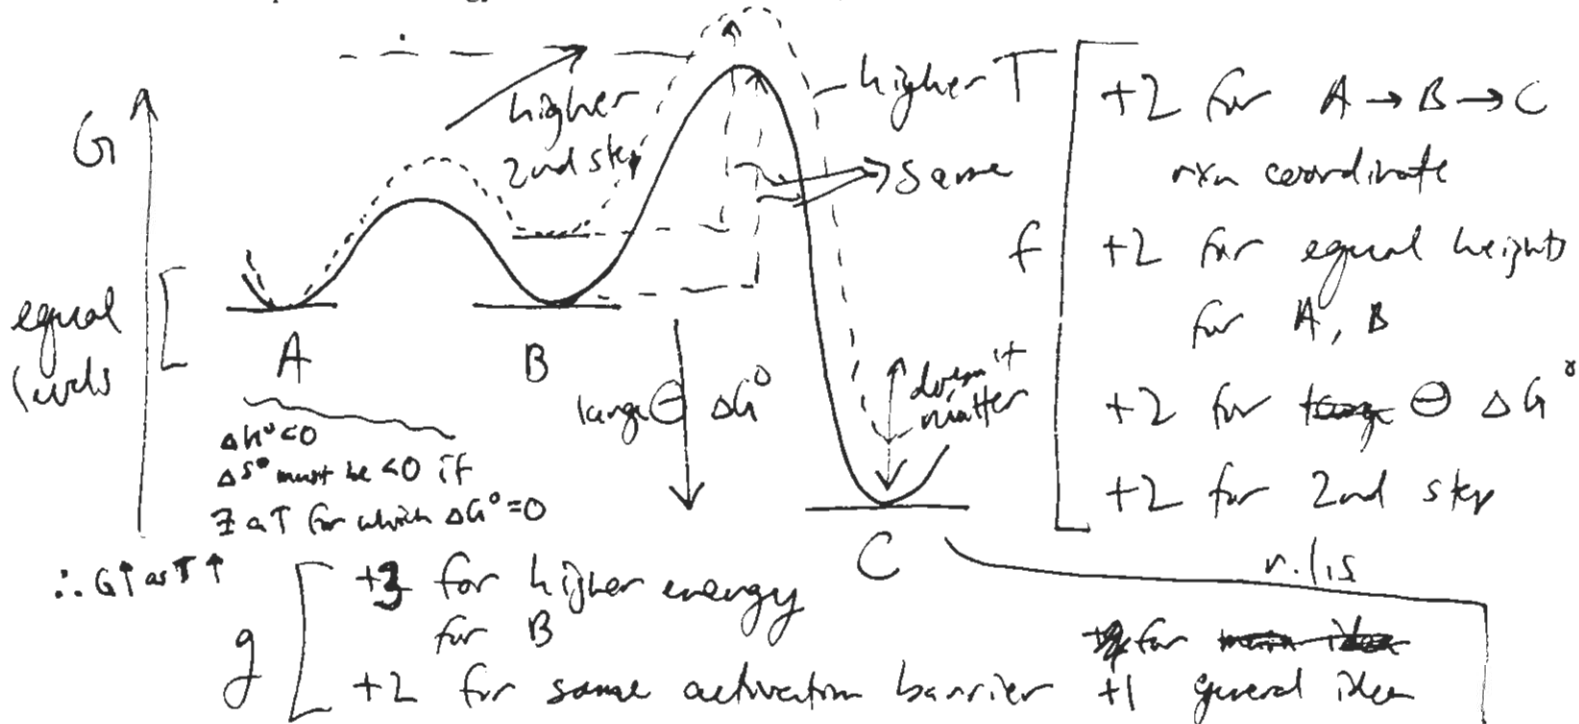 higher T
higher
2nd step
same
G
equal
levels
A
B
C
large ⊖ ΔG°
doesn't
matter
ΔH° <0
ΔS° must be <0 if
∃ a T for which ΔG° =0
∴ G↑ as T↑
f
+2 for A → B → C
rxn coordinate
+2 for equal heights
for A, B
+2 for ⊖ ΔG°
+2 for 2nd step
r.l.s
g
+3 for higher energy
for B
+2 for same activation barrier
for main idea
+1 general idea